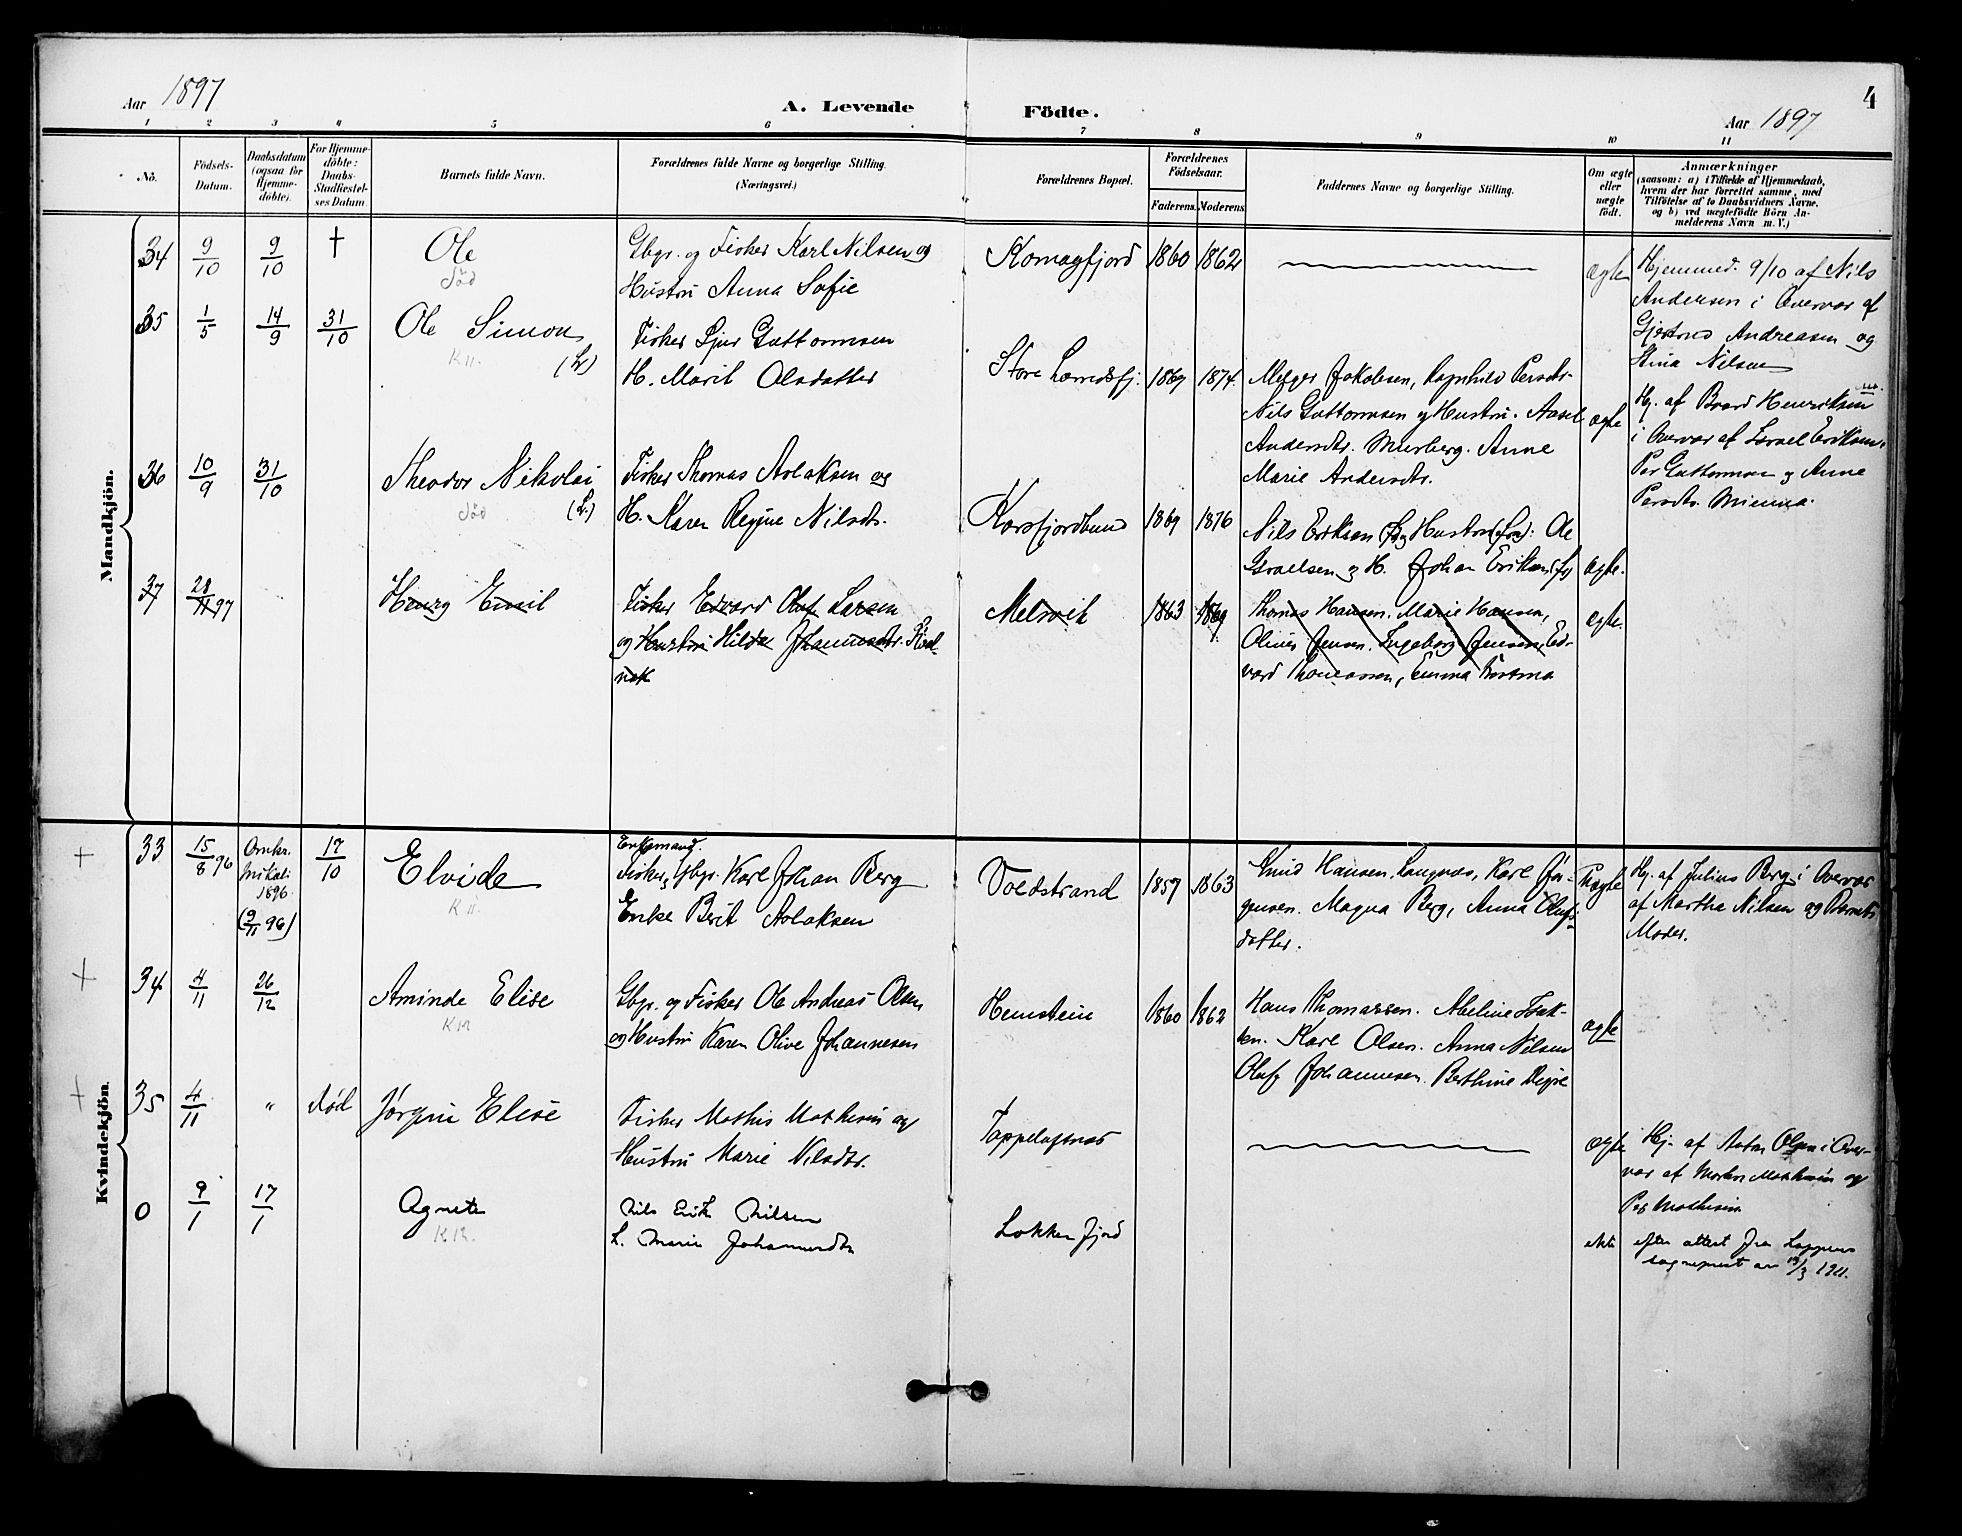 Aar 1897
A. Levende Födte.
Aar 1897
4
1 2 3 4 5 6 7 8 9 10 11
No.
Födsels-Datum.
Daabsdatum (ogsaa for Hjemme-döbte).
For Hjemme-döbte: Daabs-Stadfæstel-ses Datum.
Barnets fulde Navn.
Forældrenes fulde Navne og borgerlige Stilling.
(Næringsvei.)
Forældrenes Bopæl.
Forældrenes Födselsaar.
Faderens. Moderens.
Faddernes Navne og borgerlige Stilling.
Om ægte eller uægte födt.
Anmærkninger
(saasom: a) i Tilfælde af Hjemmedaab,
hvem der har forrettet samme, med
Tilföielse af to Daabsvidners Navne.
og b) ved uægtefödte Börn An-
melderens Navn m. V.)
Mandkjön.
34 9/10 9/10 † Ole
død
Gbgr. og Fisker Karl Nilsen og
Hustru Anna Sofie
Komagfjord 1860 1862
ægte
Hjemmed. 9/10 af Nils
Andersen i Overvær af
Andreasen og
Stina Nilsen
35 1/5 14/9 31/10 Ole Simon
K 11. (L)
Fisker Sjur Guttormsen
H. Marit Olsdatter
Store 1869 1874.
Jakobsen, Ragnhild Persdtr.
Nils Guttormsen og Hustru. Aasel
Andersdtr. Murberg. Anne
Marie Andersdtr.
ægte
Hj. af Baard Henriksen
i Overvær af Israel Eriksen,
Per Guttormsen og Anne
Persdtr.
36 10/9 31/10 Theodor Nikolai
død (L.)
Fisker Thomas Aslaksen og
H. Karen Regine Nilsdtr.
Korsfjordbund 1869 1876
Nils Eriksen og Hustru: Ole
Israelsen og H. Johan Eriksen
ægte.
37 28/11 97 Henry Emil
Fisker Edvard Oluf Larsen
og Hustru Hilda Johannesdtr.
Melsvik 1863 1869
Thomas Hansen. Marie Hansen,
Oliver Jensen. Ingeborg Jensen, Ed-
vard Thomassen, Emma
ægte.
Kvindekjön.
+ 33 15/8 96 Omkr.
Mikali
1896.
(9/11 96) 17/10 Elvide
K 11.
Enkemand.
Fisker, Gbgr. Karl Johan Berg
Enke Berit Aslaksen
Voldstrand 1857 1863
Knud Hansen, Langnæs, Karl Jør-
gensen. Magna Berg, Anna Olufs-
datter.
Uægte
Hj. af Julius Berg i Overvær
af Martha Nilsen og Barnets
Moder.
+ 34 4/11 26/12 Aminde Elise
K 12
Gbgr. og Fisker Ole Andreas Olsen
og Hustru Karen Olive Johannesen
1860 1862
Hans Thomassen. Abeline Isak-
sen. Karl Olsen. Anna Nilsen
Oluf Johannesen. Berthine
ægte
+ 35 4/11 " død Jørgine Elise
Fisker Mathis Mathisen og
Hustru Marie Nilsdtr.
ægte
Hj. af Anton Olsen i Over-
vær af Morten Mathisen og
Per Mathisen
0 9/1 17/1 Agnete
K 12.
Nils Erik Nilsen
L. Marie Johannesdtr
Lokkerfjord
ekte
efter attest fra Loppens
sogneprest av 13/3 1911.